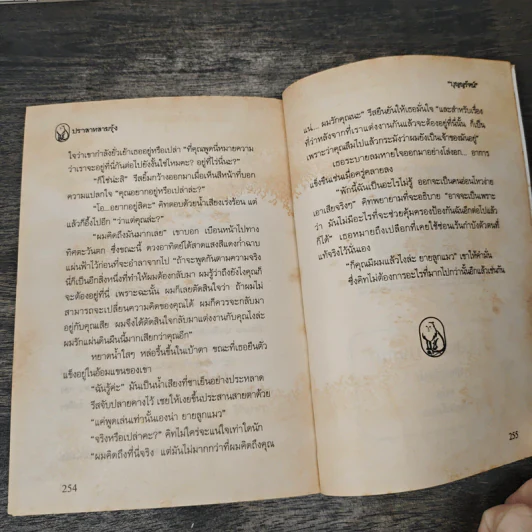 ปราสาททรายรุ้ง
ใจว่าเขากำลังยั่วเย้าเธออยู่หรือเปล่า “ที่คุณพูดนี่หมายความ
ว่าเราจะอยู่ที่นี่กันต่อไปยังงั้นใช่ไหมคะ? อยู่ที่ไร่นี่นะ?”
“ก็ใช่น่ะสิ” รีสยิ้มกว้างออกมาเมื่อเห็นสีหน้าที่บอก
ความแปลกใจ “คุณอยากอยู่หรือเปล่าล่ะ?”
“โอ...อยากอยู่สิคะ” คิทตอบด้วยน้ำเสียงเร่งร้อน แต่
แล้วก็อึ้งไปอีก “ว่าแต่คุณล่ะ?”
“ผมคิดถึงมันมากเลย” เขาบอก เบือนหน้าไปทาง
ทิศตะวันตก ซึ่งขณะนี้ ดวงอาทิตย์ได้สาดแสงสีแดงก่ำฉาบ
แผ่นฟ้าไว้ก่อนที่จะอำลาจากไป “ถ้าจะพูดกันตามความจริง
นี่ก็เป็นอีกสิ่งหนึ่งที่ทำให้ผมต้องกลับมา ผมรู้ว่าถึงยังไงคุณก็
จะต้องอยู่ที่นี่ เพราะฉะนั้น ผมก็เลยตัดสินใจว่า ถ้าผมไม่
สามารถจะเปลี่ยนความคิดของคุณได้ ผมก็ควรจะกลับมา
อยู่กับคุณเสีย ผมจึงได้ตัดสินใจกลับมาแต่งงานกับคุณไงล่ะ
ผมรักแผ่นดินผืนนี้มากเสียกว่าคุณอีก”
หยาดน้ำใสๆ หล่อรื้นขึ้นในเบ้าตา ขณะที่เธอยืนตัว
แข็งอยู่ในอ้อมแขนของเขา
“ฉันรู้ค่ะ” มันเป็นน้ำเสียงที่ชาเย็นอย่างประหลาด
รีสจับปลายคางไว้ เชยให้เงยขึ้นประสานสายตาด้วย
“แค่พูดเล่นเท่านั้นเองน่า ยายลูกแมว”
“จริงหรือเปล่าคะ?” คิทไม่ใคร่จะแน่ใจเท่าใดนัก
“ผมคิดถึงที่นี่จริง แต่มันไม่มากกว่าที่ผมคิดถึงคุณ
254
“บุญญรัตน์”
แน่... ผมรักคุณนะ” รีสยืนยันให้เธอมั่นใจ “และสำหรับเรื่อง
ที่ว่าหลังจากที่เราแต่งงานกันแล้วจะต้องอยู่ที่นี่นั้น ก็เป็น
เพราะว่าคุณลืมไปแล้วกระมังว่าผมยังเป็นเจ้าของมันอยู่”
เธอระบายลมหายใจออกมาอย่างโล่งอก... อาการ
แข็งขืนเช่นเมื่อครู่คลายลง
“พักนี้ฉันเป็นอะไรไม่รู้ ออกจะเป็นคนอ่อนไหวง่าย
เอาเสียจริงๆ” คิทพยายามที่จะอธิบาย “อาจจะเป็นเพราะ
ว่า มันไม่มีอะไรที่จะช่วยคุ้มครองป้องกันฉันอีกต่อไปแล้ว
ก็ได้” เธอหมายถึงเปลือกที่เคยใช้ซ่อนเร้นกำบังตัวตนที่
แท้จริงไว้นั่นเอง
“ก็คุณมีผมแล้วไงล่ะ ยายลูกแมว” เขาให้คำมั่น
ซึ่งคิทไม่ต้องการอะไรที่มากไปกว่านั้นอีกแล้วเช่นกัน
255